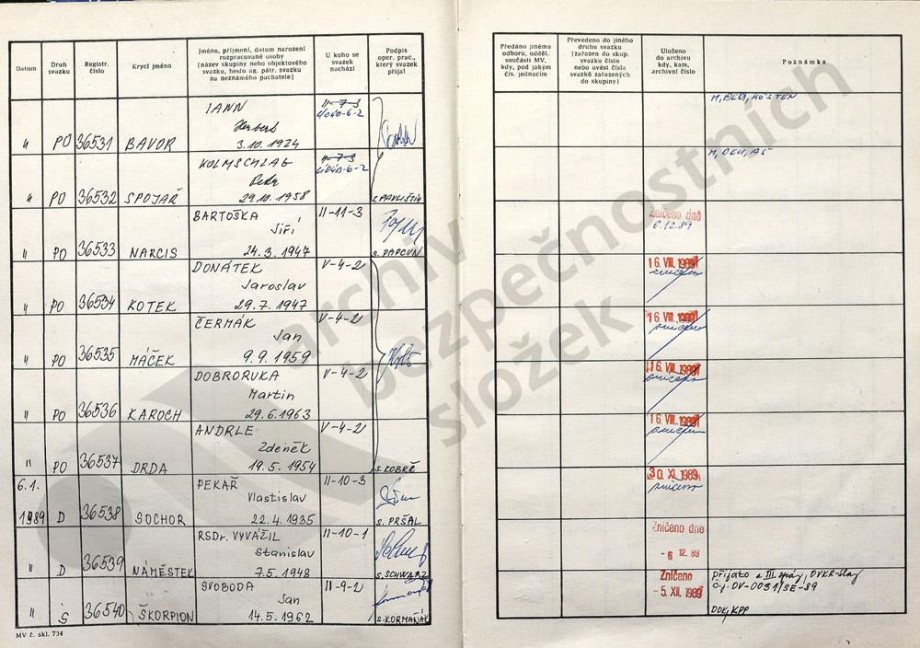 Datum
Druh svazku
Registr. číslo
Krycí jméno
Jméno, příjmení, datum narození
rozpracované osoby
(název skupiny nebo objektového
svazku, heslo ag. pátr. svazku
na neznámého pachatele)
U koho se
svazek
nachází
Podpis
oper. prac.,
který svazek
přijal
Předáno jinému
odboru, odděl.
součásti MV,
kdy, pod jakým
čís. jednacím
Převedeno do jiného
druhu svazku
(zařazen do skup.
svazku číslo
nebo uvést čísla
svazků zařazených
do skupiny)
Uloženo
do archivu
kdy, kam,
archivní číslo
Poznámka
" PO 36531 BAVOR
IANN
Herbert
3.10.1924
II-7-3
" PO 36532 SPOJAŘ
KOLMSCHLAG
Petr
29.10.1958
II-7-3
s. PAVLIŠTÍK
" PO 36533 NARCIS
BARTOŠKA
Jiří
24.3.1947
II-11-3
s. PAPCUN
Zničeno dne
6.12.89
" PO 36534 KOTEK
DONÁTEK
Jaroslav
29.7.1947
V-4-2
16. VIII. 1989
zničeno
" PO 36535 MÁČEK
ČERMÁK
Jan
9.9.1959
V-4-2
16. VIII. 1989
zničeno
" PO 36536 KAROCH
DOBRORUKA
Martin
29.6.1963
V-4-2
16. VIII. 1989
zničeno
" PO 36537 DRDA
ANDRLE
Zdeněk
19.5.1954
V-4-2
s. KOBRŽ
16. VIII. 1989
zničeno
6.1.
1989 D 36538 SOCHOR
PEKAŘ
Vlastislav
22.4.1935
II-10-3
s. PRŠAL
30. XI. 1989
zničeno
" D 36539 NÁMĚSTEK
RSDr. VYVÁŽIL
Stanislav
7.5.1948
II-10-1
s. SCHWARZ
Zničeno dne
- 6 12. 89
" S 36540 ŠKORPION
SVOBODA
Jan
14.5.1962
II-9-2
s. KORMAŇÁK
Zničeno
- 5. XII. 1989
přijato z III. správy, OVKR-Slaný
č.j. OV-0031/SE-89
DOK, KPP
MV č. skl. 734
archiv
bezpečnostních
složek